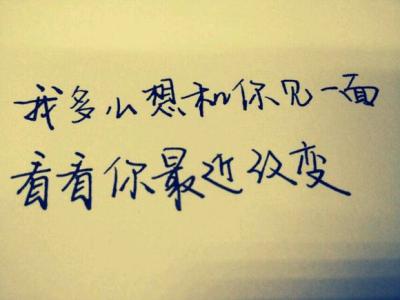 我多么想和你见一面
看看你最近改变